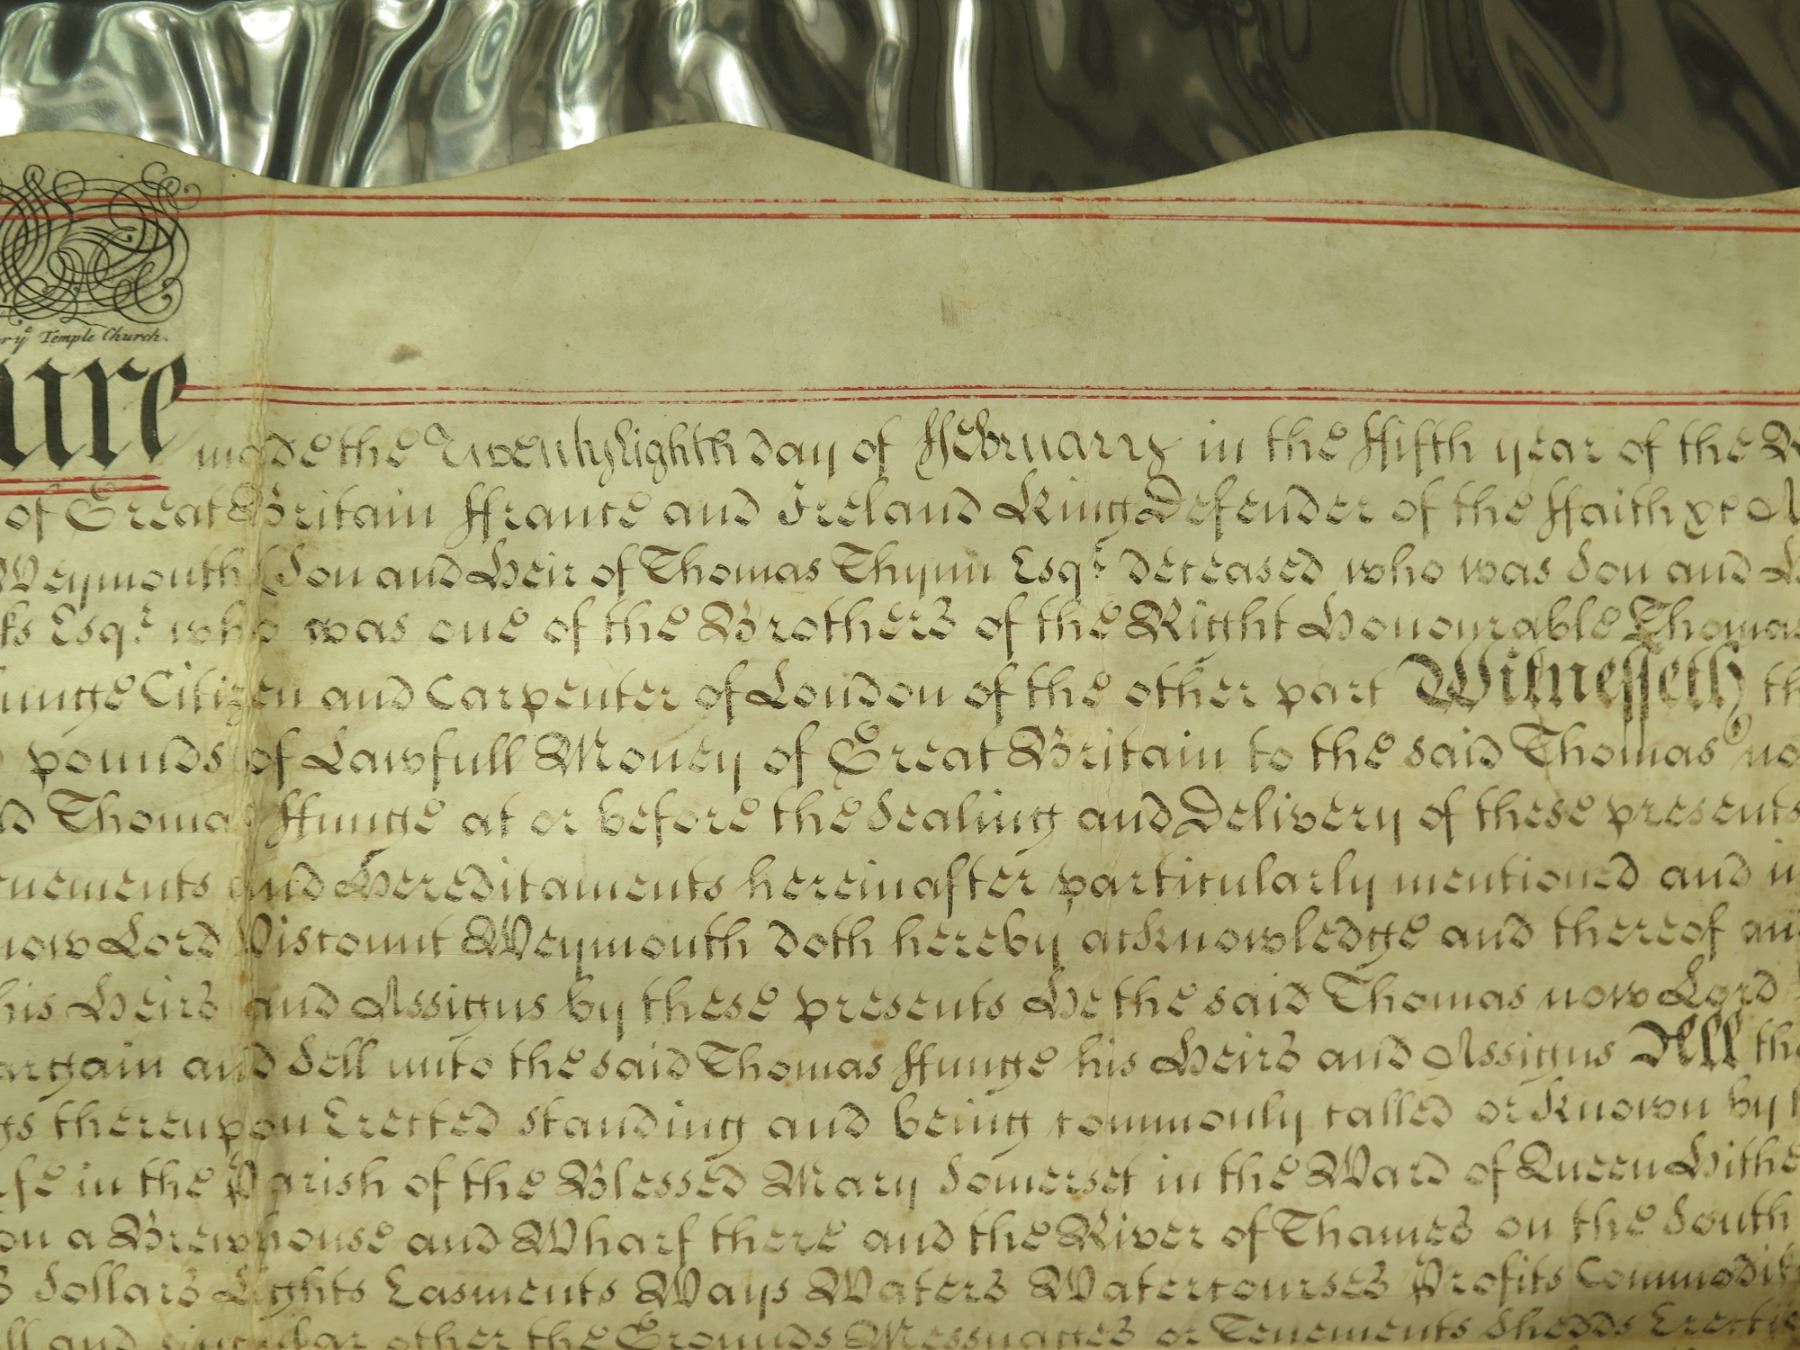 Temple Church.
ure made the Twentyeighth day of ffebruary in the ffifth year of the
of Great Britain ffrance and Ireland King Defender of the ffaith &c
Weymouth (Son and Heir of Thomas Thynn Esqr deceased who was Son and
Esqr who was one of the Brothers of the Right Honourable Thomas
Citizen and Carpenter of London of the other part Witnesseth
pounds of Lawfull Money of Great Britain to the said Thomas
Thomas ffunge at or before the Sealing and Delivery of these presents
and Hereditaments hereinafter particularly mentioned and
now Lord Viscount Weymouth doth hereby acknowledge and thereof
his Heirs and Assigns by these presents He the said Thomas now Lord
and Sell unto the said Thomas ffunge his Heirs and Assigns All
thereupon Erected standing and being commonly called or Known by
in the Parish of the Blessed Mary Somerset in the Ward of Queen Hithe
on a Brewhouse and Wharf there and the River of Thames on the South
Sollars Lights Easments Ways Waters Watercourses Profits
and singular other the Grounds Messuages or Tenements Shedds